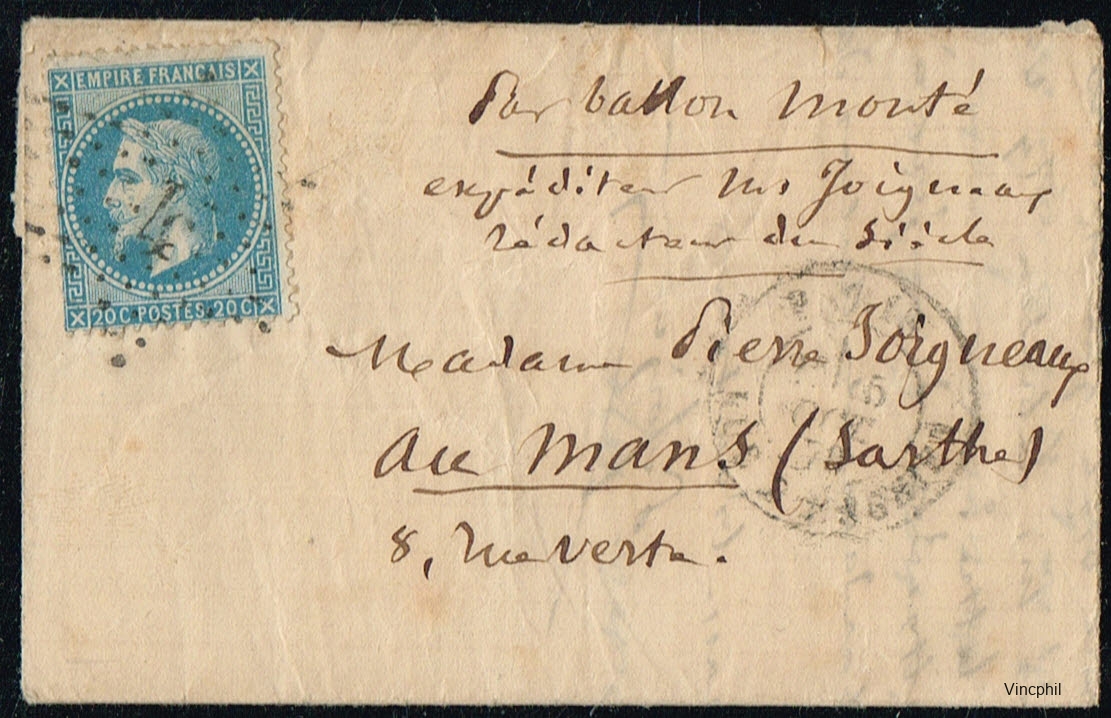 EMPIRE FRANÇAIS
20 C. POSTES. 20 C.
Par ballon monté
expéditeur Mr Joigneaux
rédacteur du Siècle
Madame Pierre Joigneaux
au Mans (Sarthe)
8, rue verte.
PARIS
Vincphil